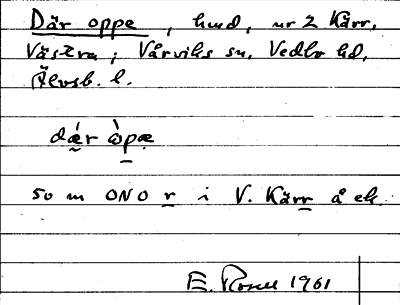 Där oppe, hmd, nr 2 Kärr,
Västra; Vårviks sn, Vedbo hd,
Älvsb. l.
dǽr òpæ
som ONO r i V. Kärr å ek.
E. Rosell 1961